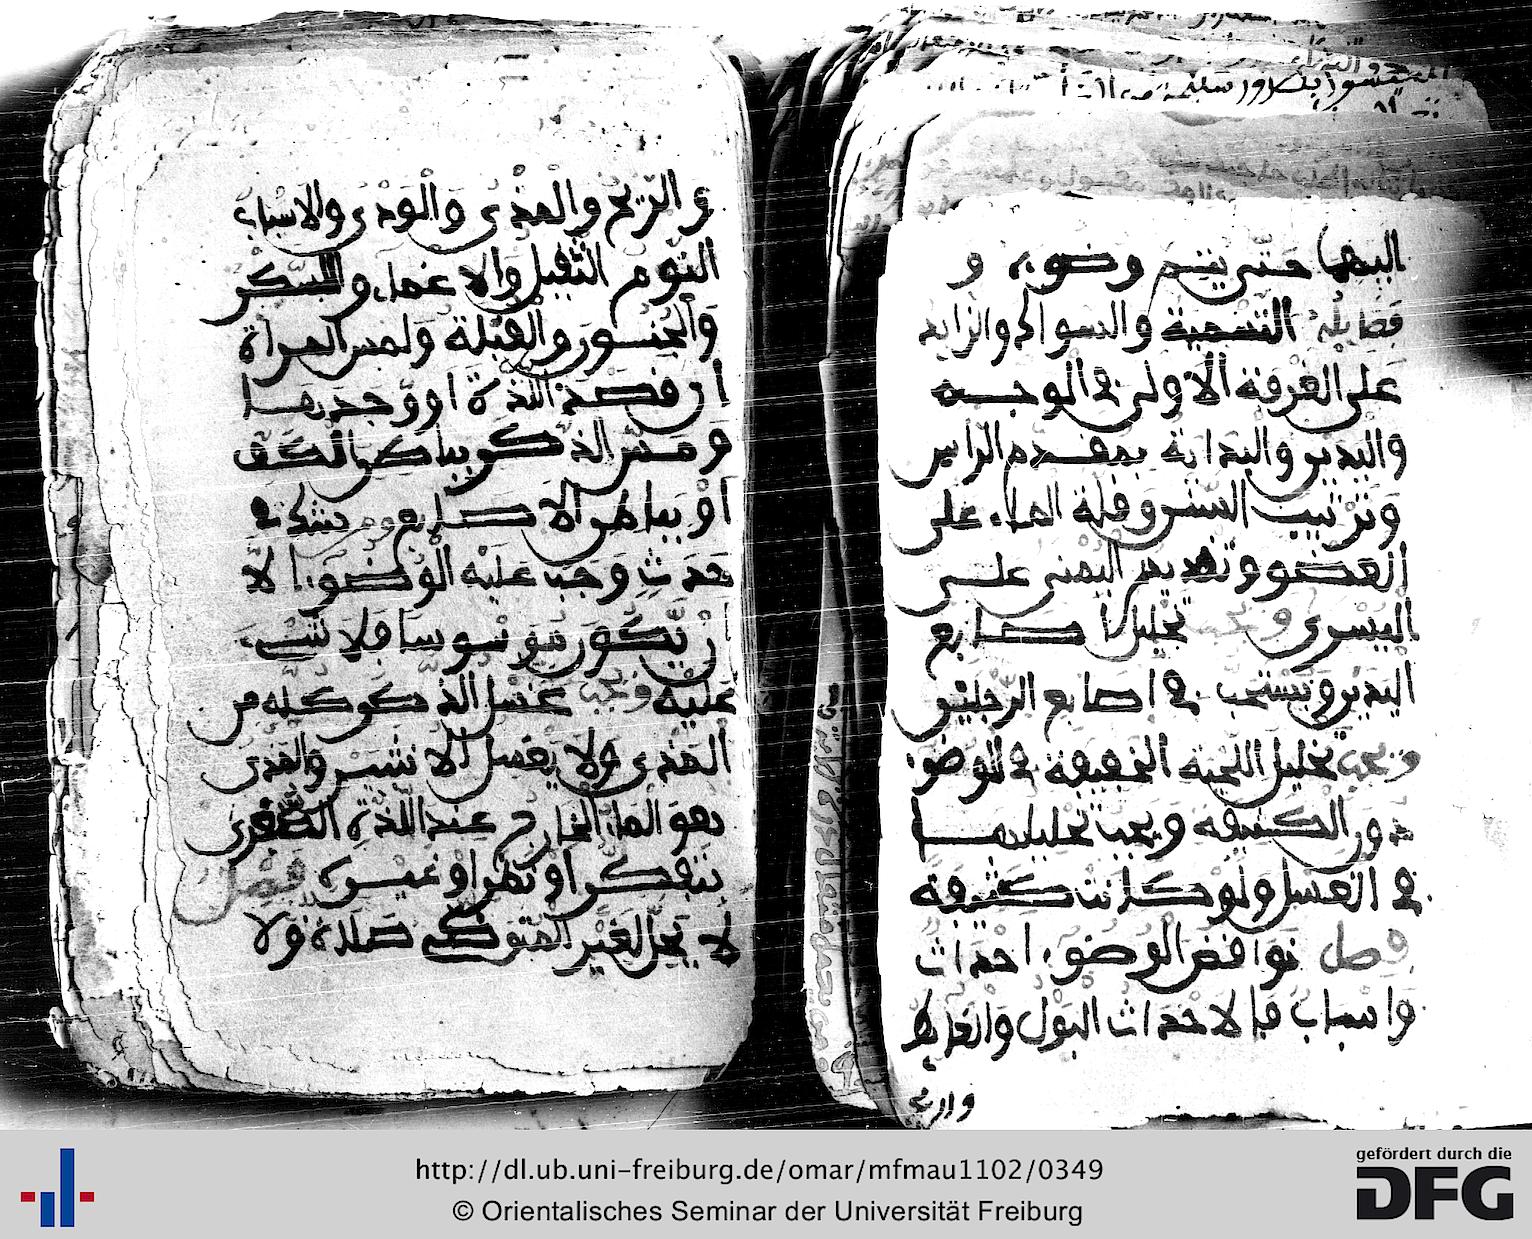 اليهما حتى يتم وضوءه و
فضايله التسمية والسواك والزايد
على الغرفة الاولى في الوجه
واليدين والبداية بمقدم الراس
وترتيب السنن وقلة الماء على
العضو وتقديم اليمنى على
اليسرى ويجب تخليل اصابع
اليدين ويستحب في اصابع الرجلين
ويجب تخليل اللحية الخفيفة في الوضوء
دون الكثيفة ويجب تخليلها
في الغسل ولو كانت كثيفة
فصل نواقض الوضوء احداث
واسباب فالاحداث البول والغايط
والريح
والريح والمذي والودي والاسباب
النوم الثقيل والاغماء والسكر
والجنون والقبلة ولمس المراة
ان قصد اللذة او وجدها
ومس الذكر بباطن الكف
او بباطن الاصابع ومن شك في
حدث وجب عليه الوضوء الا
ان يكون موسوسا فلا شيء
عليه ويجب غسل الذكر كله من
المذي ولا يغسل الانثيين والمذي
هو الماء الخارج عند اللذة الصغرى
بتفكر او نظر او غيره فصل
لا يحل لغير المتوضي صلاة ولا
http://dl.ub.uni-freiburg.de/omar/mfmau1102/0349
© Orientalisches Seminar der Universität Freiburg
gefördert durch die
DFG